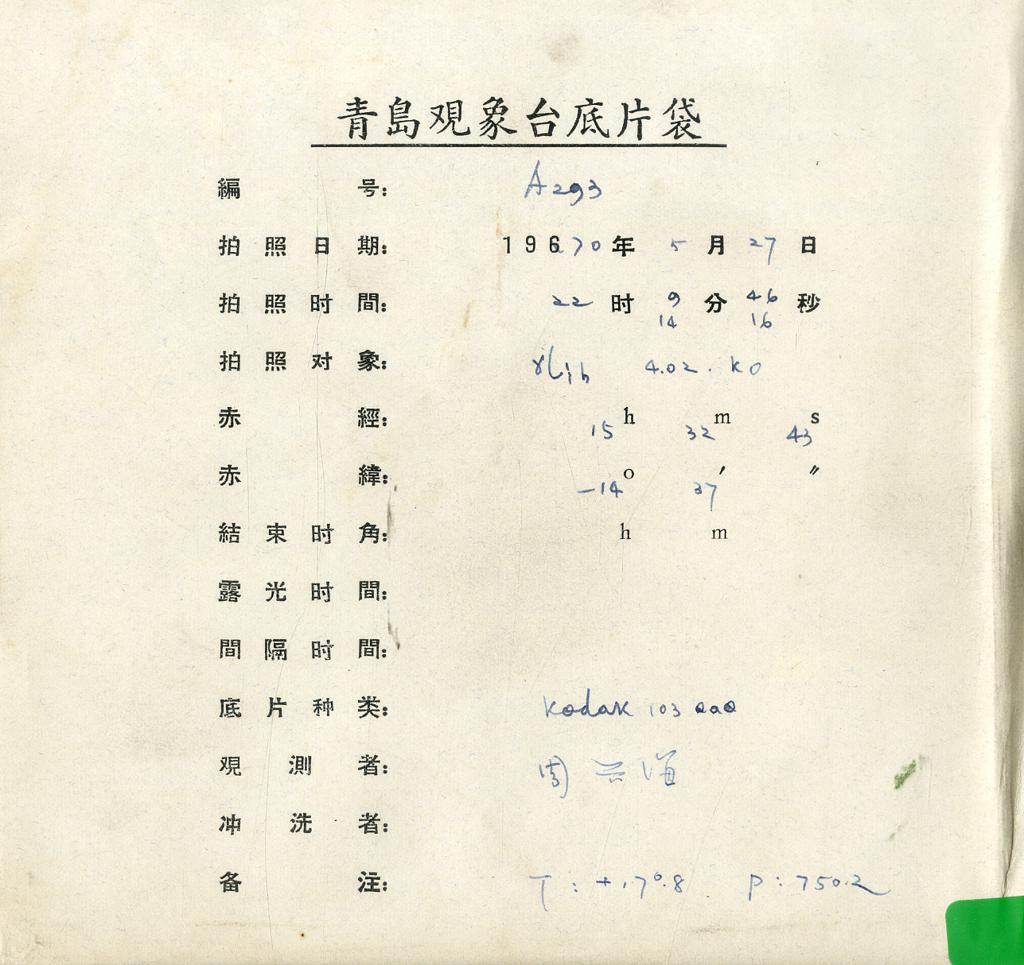 青島观象台底片袋
編号: A293
拍照日期: 196 70年 5月 27日
拍照时間: 22时 9分 46秒
14 16
拍照对象: γLib 4.02. K0
赤經: 15h 32m 43s
赤緯: -14° 37′ ″
結束时角: h m
露光时間:
間隔时間:
底片种类: Kodak 103 aao
观測者: 周
冲洗者:
备注: T: +17°.8 P: 750.2